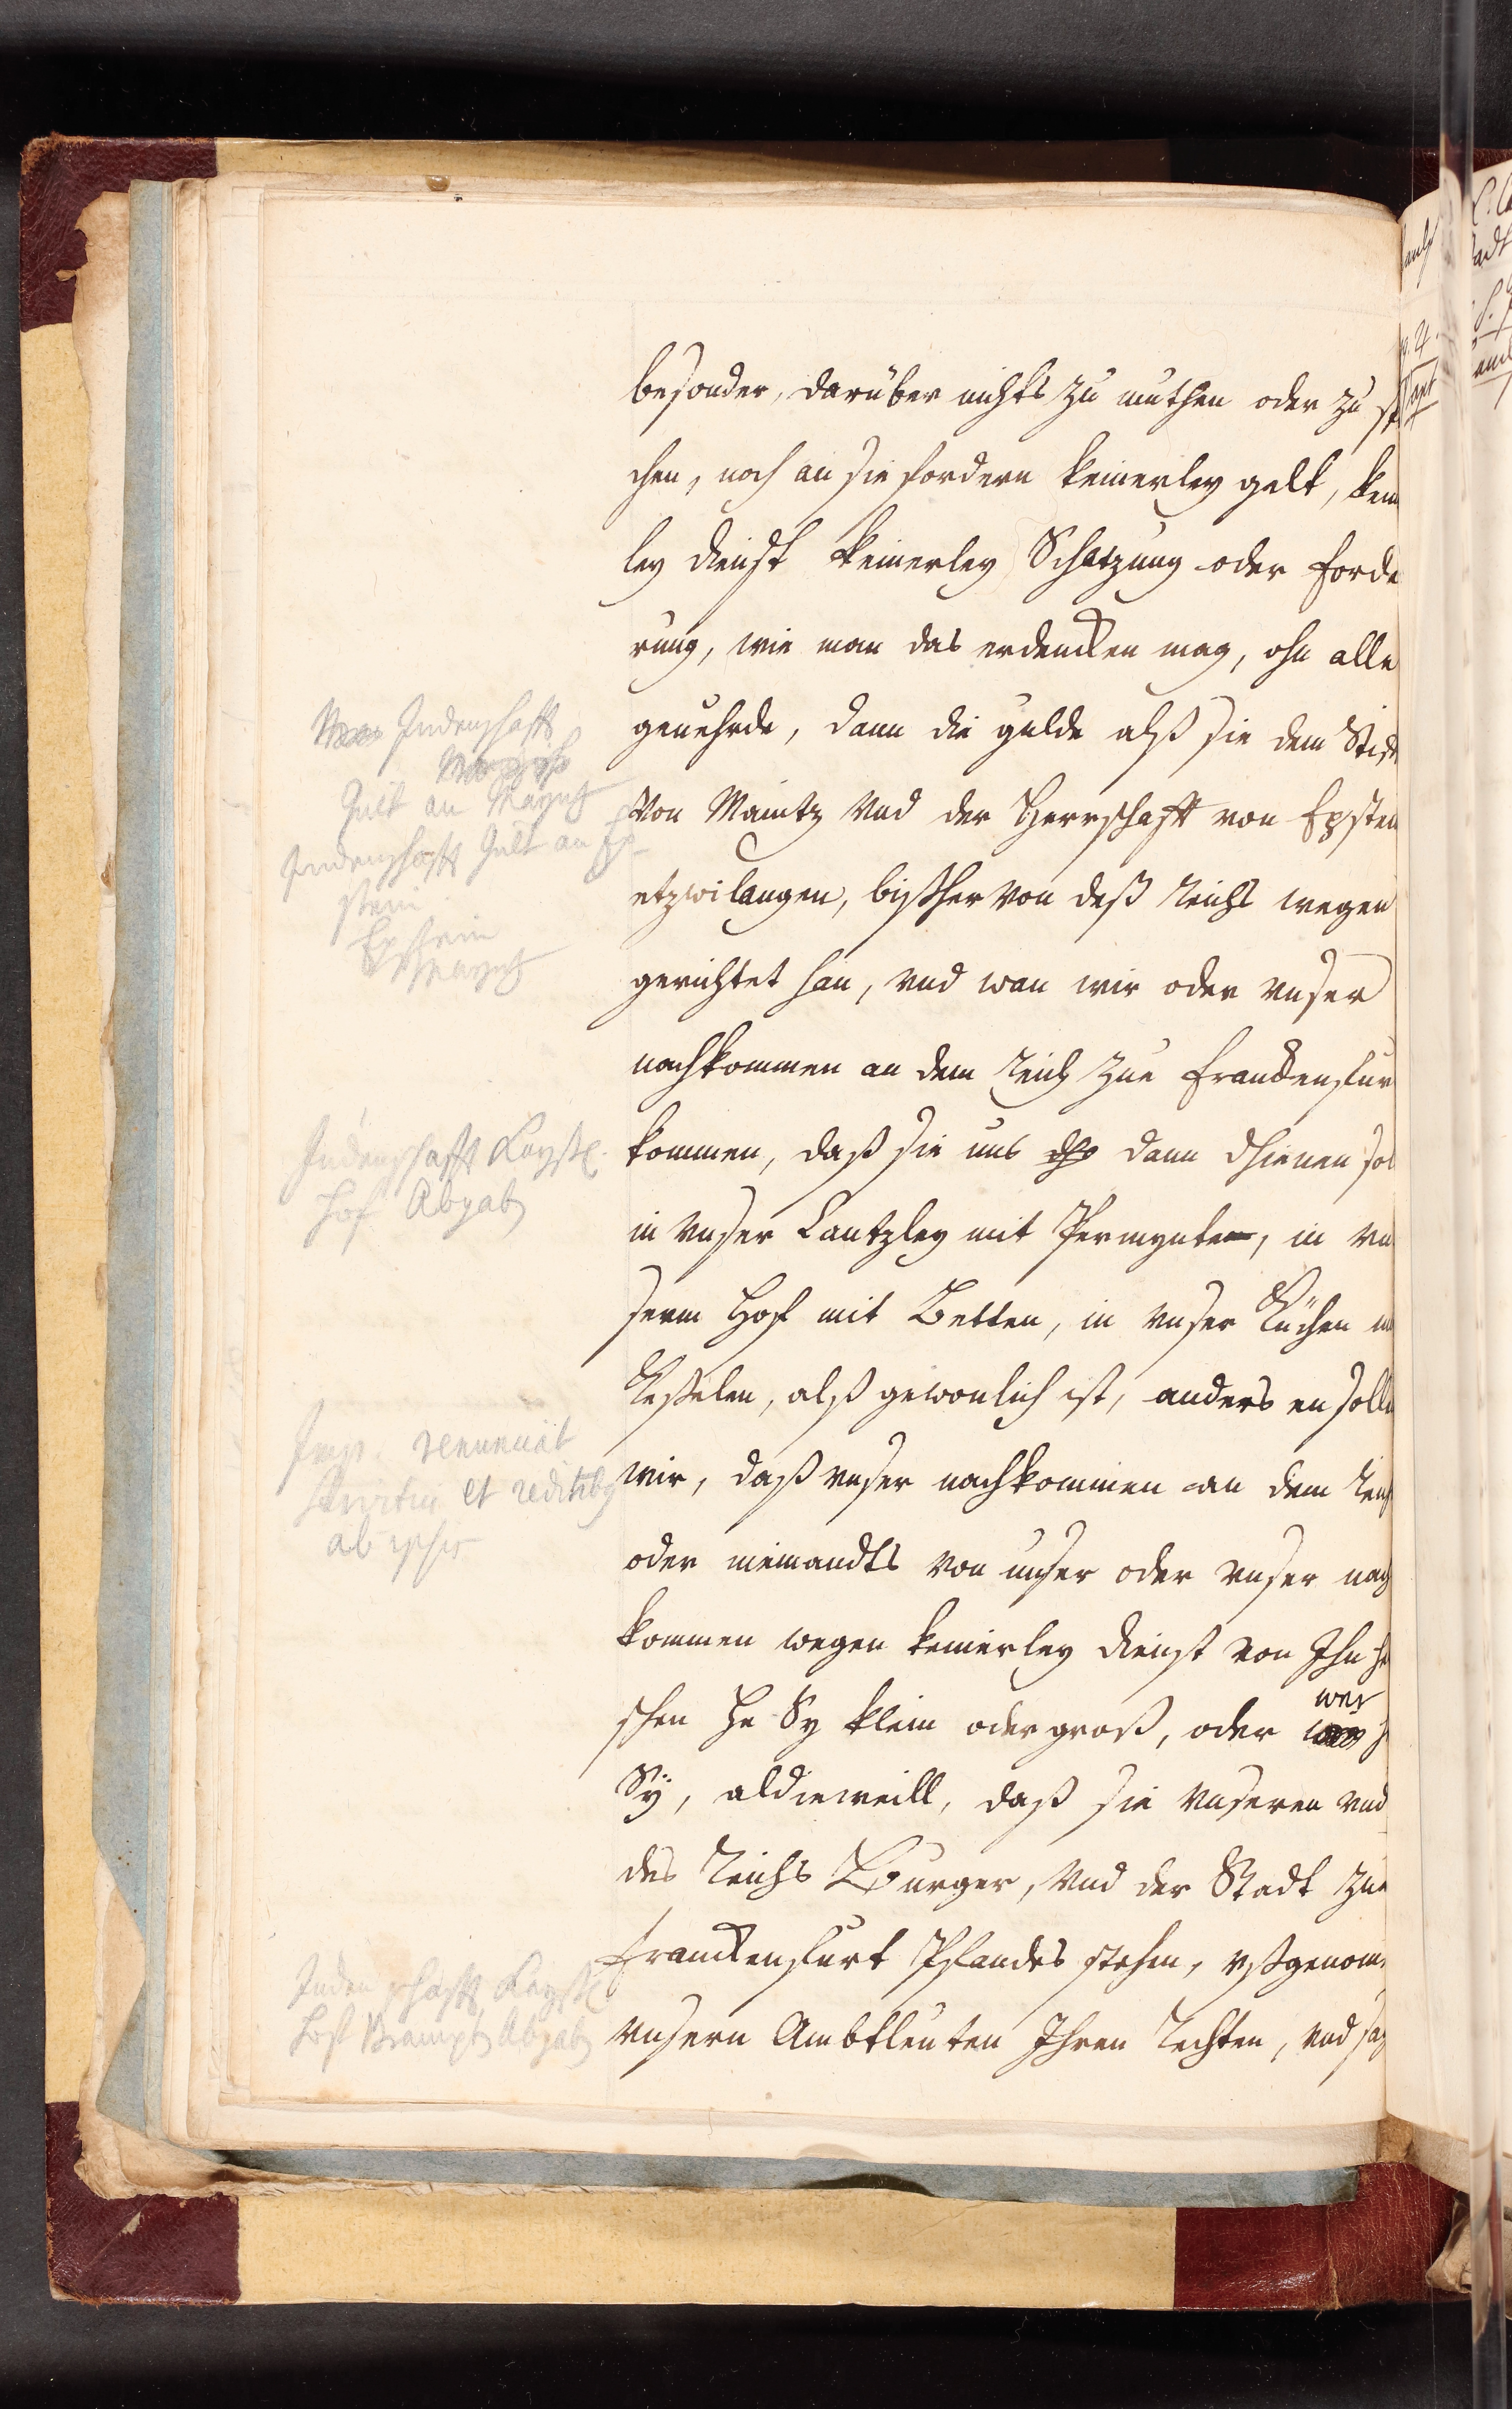 besonder, darüber nichts zu muthen oder zu
chen, noch an sie fordern keinerley gelt, kein
ley dienst keinerley Schatzung oder forde
rung, wie man das erdencken mag, ohn alle
geuehrde, dann die gulde alß sie dem Stift
Von Maintz vnd der Herrschafft von Epstein
etzwilangen, bißher von deß Reichs wegen
gerichtet han, vnd wan wir oder vnser
nachkommen an dem Reich zue franckenfur
kommen, daß sie uns dann dhienen sol
in vnser Cantzley mit Permynte, in vn
serm Hof mit Betten, in vnser Küchen
Keßelen, alß gewonlich ist, anders en solln
wir, daß vnser nachkommen an dem Reich
oder niemandts von unser oder vnser nach
kommen wegen keinerley dienst von Ihn
schen he Sy klein oder groß, oder wer
Sÿ, aldieweill, daß sie vnseren vnd
des Reichs Burger, vnd der Stadt zue
franckenfurt Pfandes stehen, vßgenom
vnsern Ambtleuten Ihren Rechten, vnd
Judenschafft
Gült an Mayntz
Judenschafft Gült an Ep-
stein
Epstein
Mayntz
Judenschafft Kayßl.
Hof Abgab
Imp. renunciat
et reditibus
ab ipsis
Judenschafft Kayßl.
Hoff Abgab